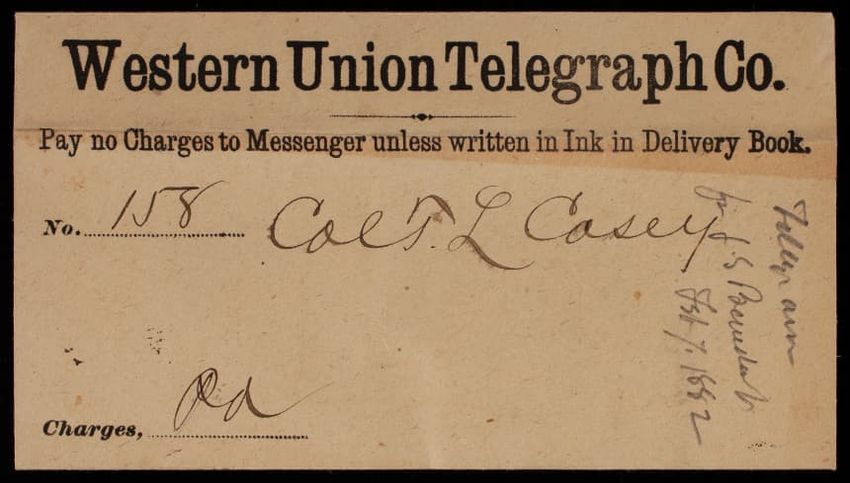 Western Union Telegraph Co.
Pay no Charges to Messenger unless written in Ink in Delivery Book.
No. 158 Col T. L Casey
Charges, Pd
Telegram
J S
Feb 7. 1882